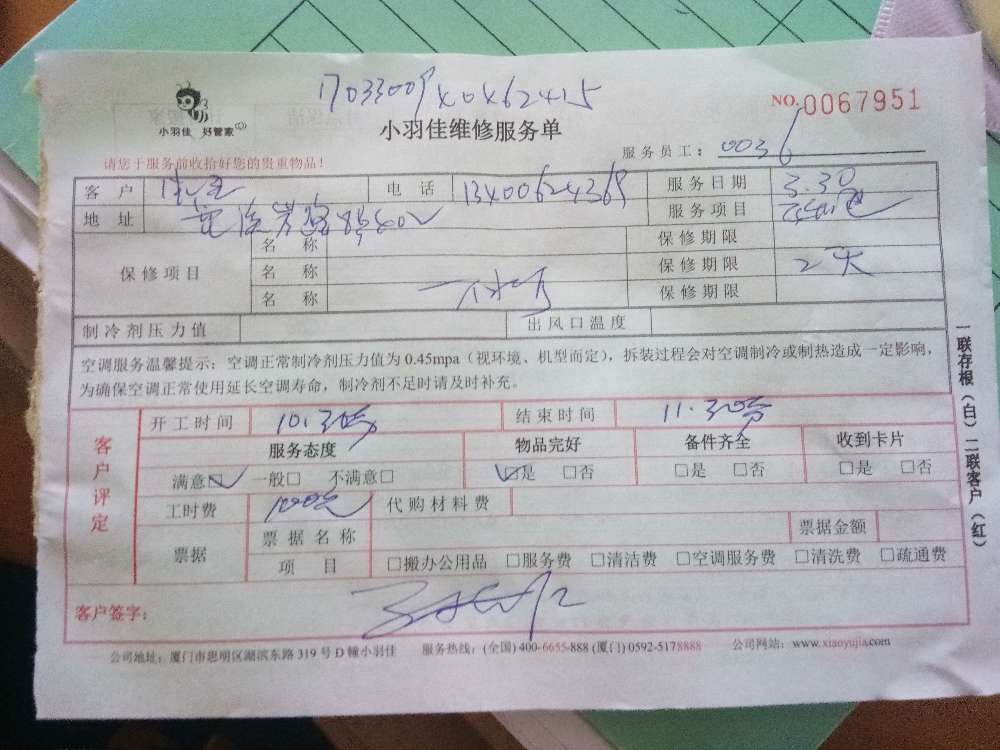 小羽佳 好管家
NO.0067951
小羽佳维修服务单
请您于服务前收拾好您的贵重物品!
服务员工: 0036
客户 电话 服务日期 3.30
地址 服务项目
保修项目 名称 保修期限
名称 保修期限 2天
名称 保修期限
制冷剂压力值 出风口温度
空调服务温馨提示: 空调正常制冷剂压力值为 0.45mpa (视环境、机型而定), 拆装过程会对空调制冷或制热造成一定影响,
为确保空调正常使用延长空调寿命, 制冷剂不足时请及时补充。
客户评定
开工时间 10:30分 结束时间 11.30分
服务态度 物品完好 备件齐全 收到卡片
满意□ 一般□ 不满意□ □是 □否 □是 □否 □是 □否
工时费 100元 代购材料费
票据 票据名称 票据金额
项目 □搬办公用品 □服务费 □清洁费 □空调服务费 □清洗费 □疏通费
客户签字:
公司地址: 厦门市思明区湖滨东路 319 号 D 幢小羽佳 服务热线: (全国) 400-6655-888 (厦门) 0592-5178888 公司网站: www.xiaoyujia.com
一联存根(白)二联客户(红)